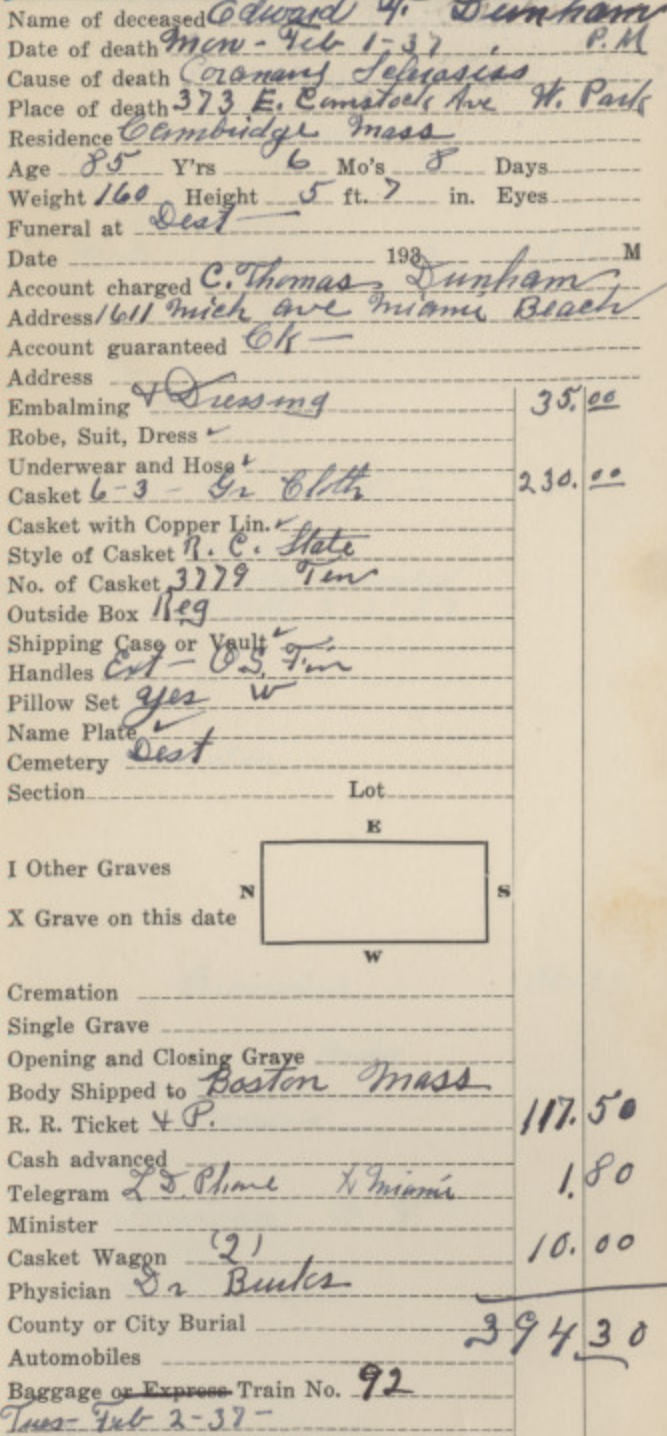 Name of deceased Edward Y. Dunham
Date of death Mon - Feb 1-37 , P.M
Cause of death Coronary Sclerosiss
Place of death 373 E. Comstock Ave W. Park
Residence Cambridge Mass
Age 85 Y'rs 6 Mo's 8 Days
Weight 160 Height 5 ft. 7 in. Eyes
Funeral at Dest —
Date 193 M
Account charged C. Thomas Dunham
Address 1611 Mich ave Miami Beach
Account guaranteed Ok —
Address
Embalming & Dressing 35.00
Robe, Suit, Dress ✓
Underwear and Hose ✓
Casket 6-3 - Gr Cloth 230.00
Casket with Copper Lin. ✓
Style of Casket R. C. State
No. of Casket 3779 Ten
Outside Box Reg
Shipping Case or Vault ✓
Handles Ext — O S,
Pillow Set yes W
Name Plate ✓
Cemetery Dest
Section Lot
E
I Other Graves
N S
X Grave on this date
W
Cremation
Single Grave
Opening and Closing Grave
Body Shipped to Boston Mass
R. R. Ticket & P. 117.50
Cash advanced
Telegram L D. Phone X Miami 1.80
Minister
Casket Wagon (2) 10.00
Physician Dr Burks
County or City Burial 394.30
Automobiles
Baggage or Express Train No. 92
Tues- Feb 2-37-